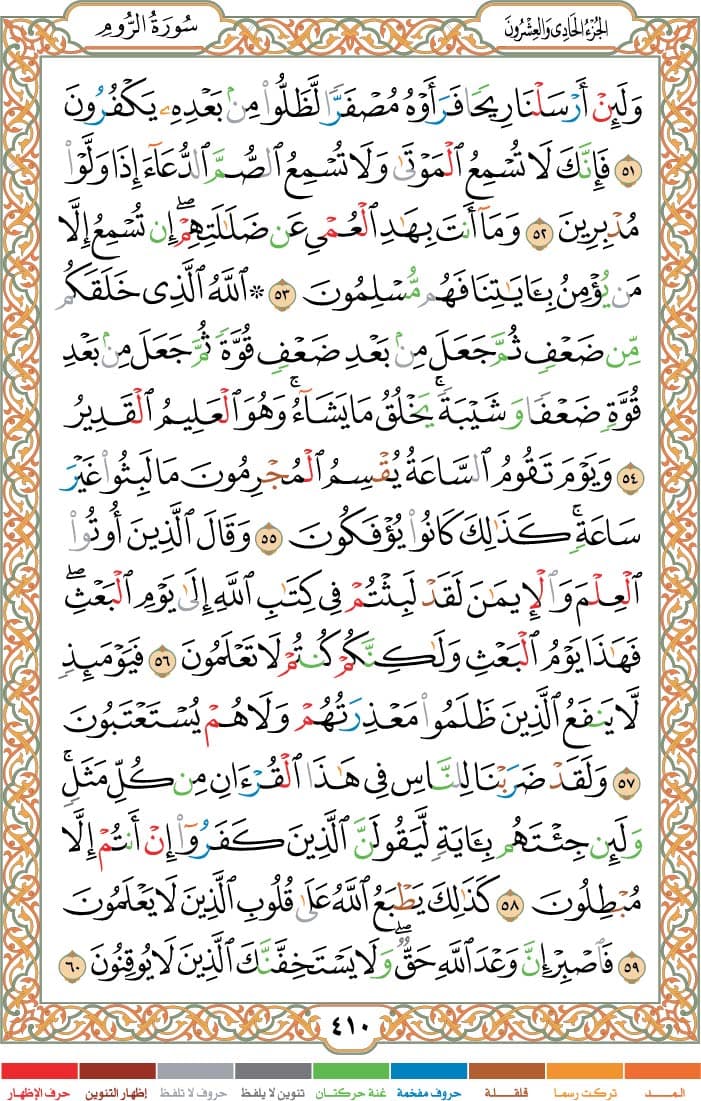 الجُزْءُ الحَادِى وَالعِشْرُونَ
سُورَةُ الرُّومِ
وَلَئِنْ أَرْسَلْنَا رِيحًا فَرَأَوْهُ مُصْفَرًّا لَّظَلُّوا۟ مِنۢ بَعْدِهِۦ يَكْفُرُونَ
٥١ فَإِنَّكَ لَا تُسْمِعُ الْمَوْتَىٰ وَلَا تُسْمِعُ الصُّمَّ الدُّعَآءَ إِذَا وَلَّوْا۟
مُدْبِرِينَ ٥٢ وَمَآ أَنتَ بِهَٰدِ الْعُمْىِ عَن ضَلَٰلَتِهِمْ ۖ إِن تُسْمِعُ إِلَّا
مَن يُؤْمِنُ بِـَٔايَٰتِنَا فَهُم مُّسْلِمُونَ ٥٣ ۞ اللَّهُ الَّذِى خَلَقَكُم
مِّن ضَعْفٍ ثُمَّ جَعَلَ مِنۢ بَعْدِ ضَعْفٍ قُوَّةً ثُمَّ جَعَلَ مِنۢ بَعْدِ
قُوَّةٍ ضَعْفًا وَشَيْبَةً ۚ يَخْلُقُ مَا يَشَآءُ ۚ وَهُوَ الْعَلِيمُ الْقَدِيرُ
٥٤ وَيَوْمَ تَقُومُ السَّاعَةُ يُقْسِمُ الْمُجْرِمُونَ مَا لَبِثُوا۟ غَيْرَ
سَاعَةٍ ۚ كَذَٰلِكَ كَانُوا۟ يُؤْفَكُونَ ٥٥ وَقَالَ الَّذِينَ أُوتُوا۟
الْعِلْمَ وَالْإِيمَٰنَ لَقَدْ لَبِثْتُمْ فِى كِتَٰبِ اللَّهِ إِلَىٰ يَوْمِ الْبَعْثِ ۖ
فَهَٰذَا يَوْمُ الْبَعْثِ وَلَٰكِنَّكُمْ كُنتُمْ لَا تَعْلَمُونَ ٥٦ فَيَوْمَئِذٍ
لَّا يَنفَعُ الَّذِينَ ظَلَمُوا۟ مَعْذِرَتُهُمْ وَلَا هُمْ يُسْتَعْتَبُونَ
٥٧ وَلَقَدْ ضَرَبْنَا لِلنَّاسِ فِى هَٰذَا الْقُرْءَانِ مِن كُلِّ مَثَلٍ ۚ
وَلَئِن جِئْتَهُم بِـَٔايَةٍ لَّيَقُولَنَّ الَّذِينَ كَفَرُوٓا۟ إِنْ أَنتُمْ إِلَّا
مُبْطِلُونَ ٥٨ كَذَٰلِكَ يَطْبَعُ اللَّهُ عَلَىٰ قُلُوبِ الَّذِينَ لَا يَعْلَمُونَ
٥٩ فَاصْبِرْ إِنَّ وَعْدَ اللَّهِ حَقٌّ ۖ وَلَا يَسْتَخِفَّنَّكَ الَّذِينَ لَا يُوقِنُونَ ٦٠
٤١٠
المــــد تركت رسما قلقــلة حروف مفخمة غنة حركتـان تنوين لا يلفظ حروف لا تلفظ إظهار التنوين حرف الإظهار